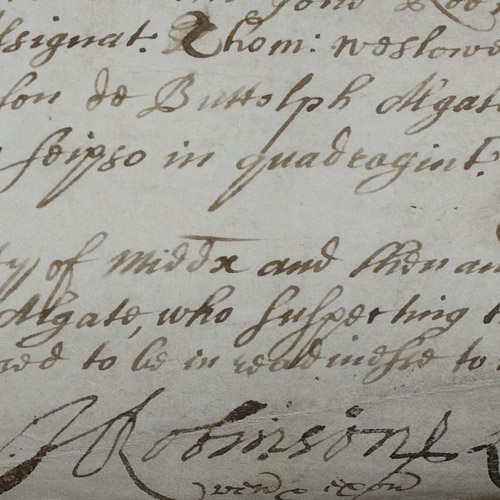 assignat. Thom: Weslow
son de Buttolph Algat
seipso in quadragint.
ty of Middx and then an
Algate, who suspecting
red to be in readinesse to
J Robinson